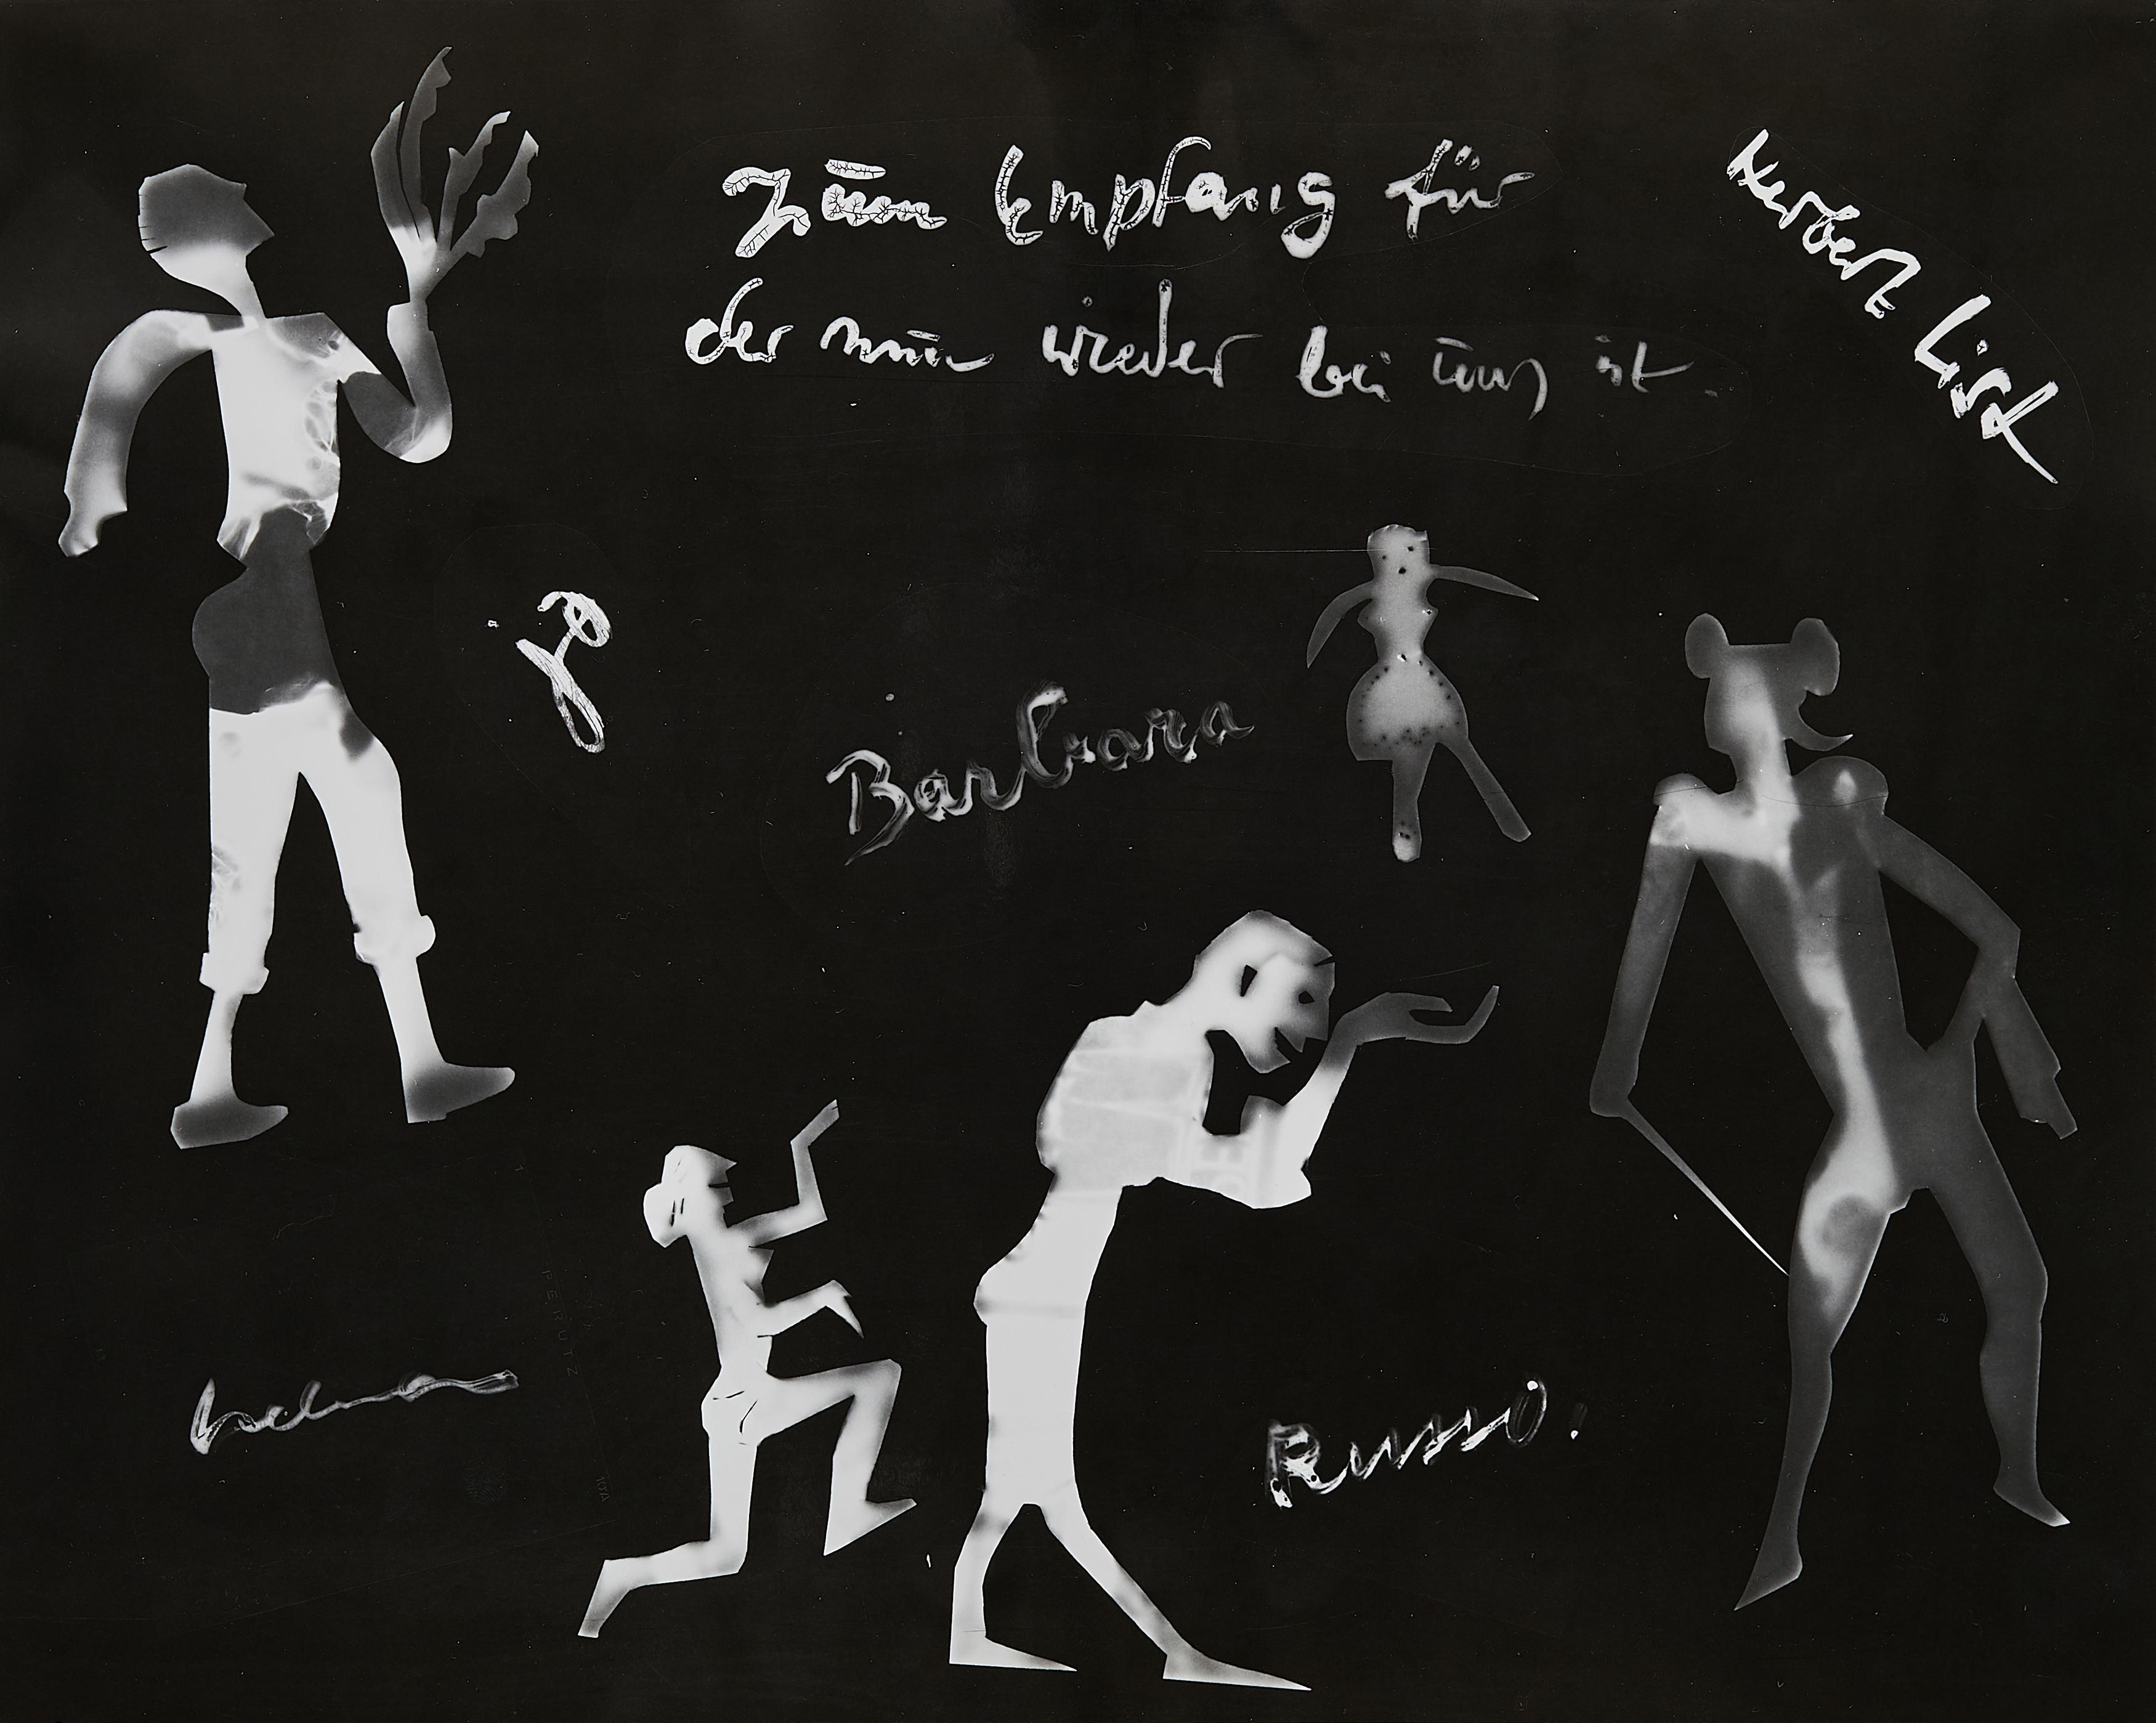 Zum Empfang für
Herbert List
der nun wieder bei uns ist.
jo
Barbara
PERUTZ
Russo!